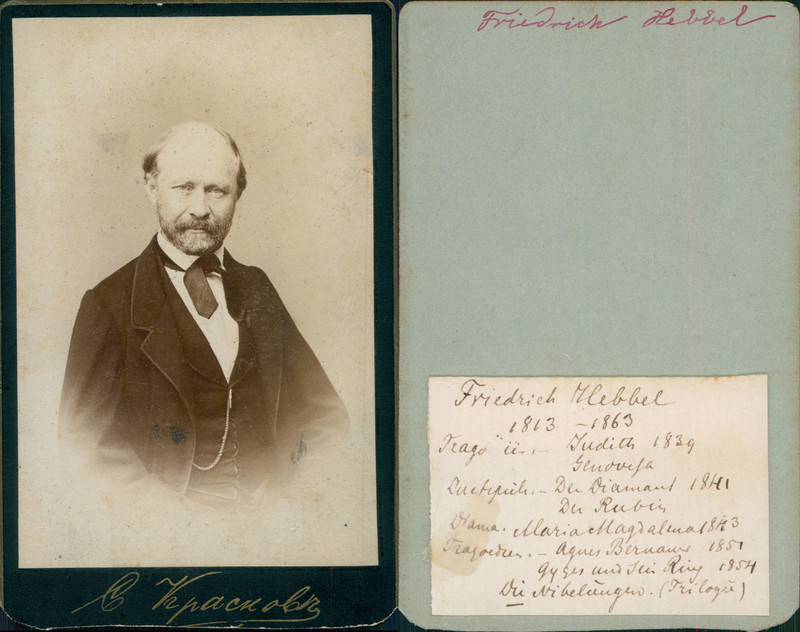 С. Красновъ
Friedrich Hebbel
Friedrich Hebbel
1813 – 1863
Judith 1839
Genovefa
Lustspiele. – Der Diamant 1841
Der Rubin
Drama. Maria Magdalena 1843
Tragoedien. – Agnes Bernauer 1851
Gyges und Sein Ring 1854
Die Nibelungen. (Trilogie)